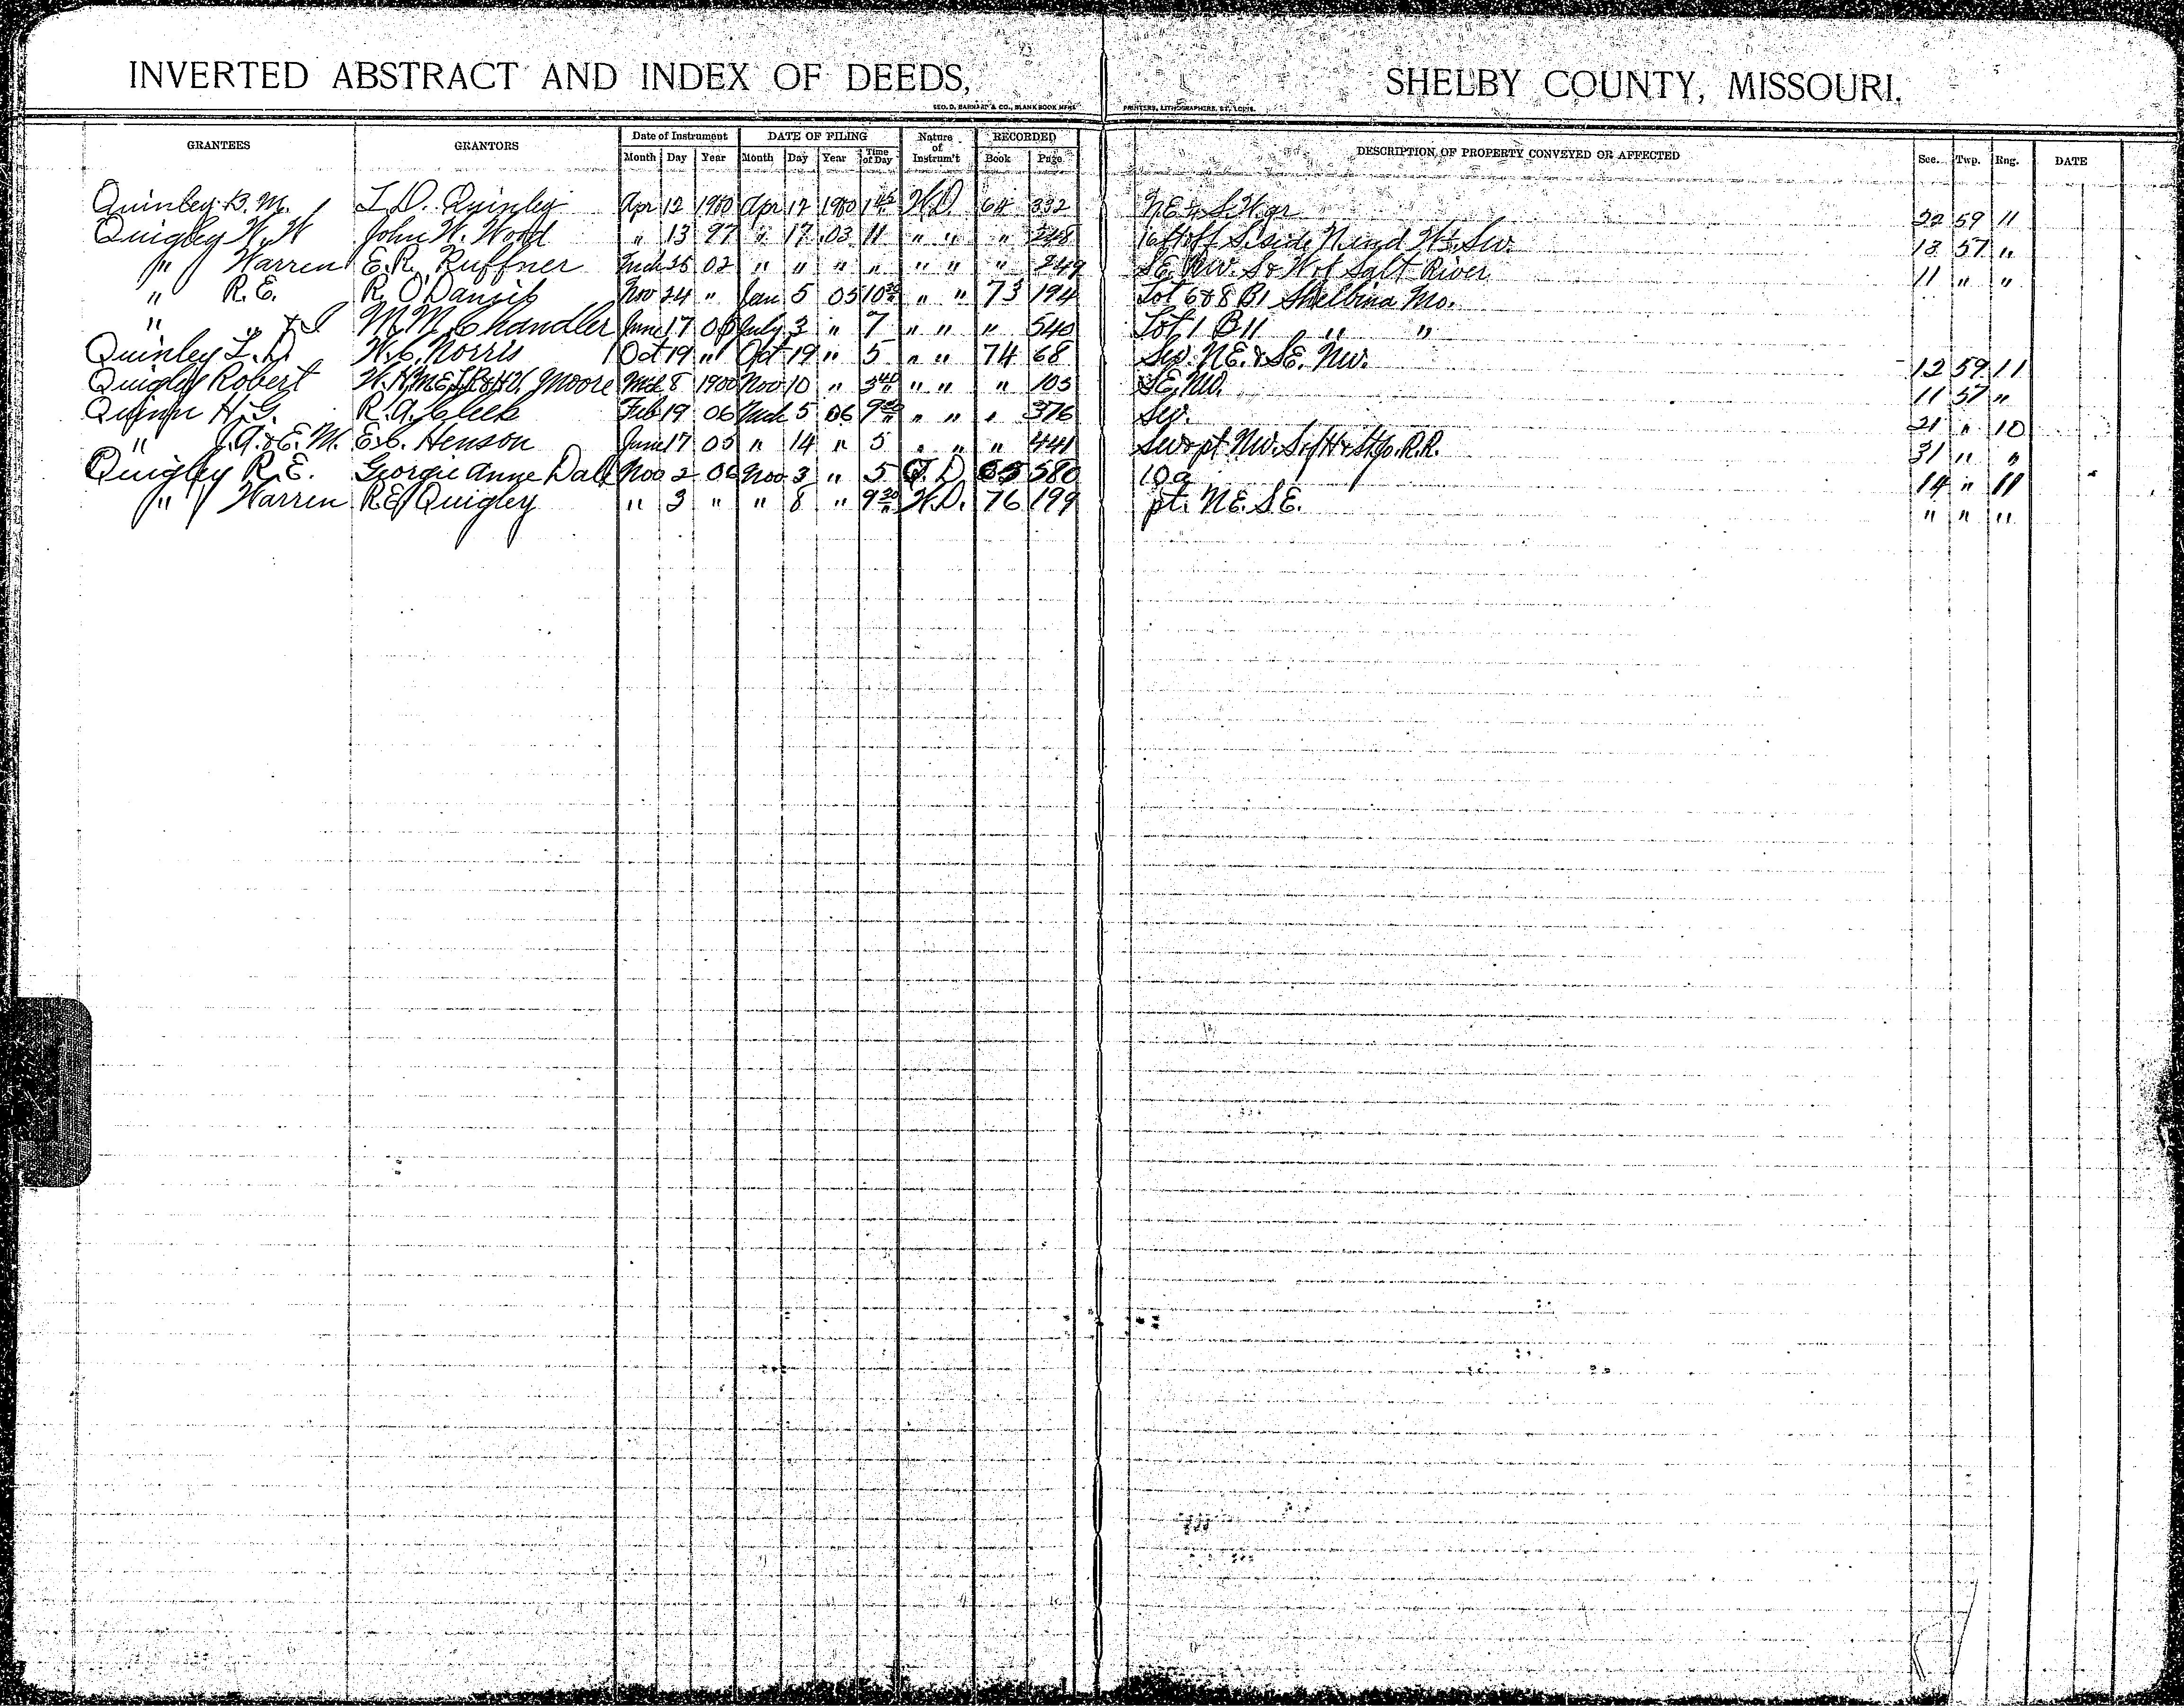 INVERTED ABSTRACT AND INDEX OF DEEDS, SHELBY COUNTY, MISSOURI.
GEO. D. BARNARD & CO., BLANK BOOK MFRS PRINTERS, LITHOGRAPHERS, ST. LOUIS.
GRANTEES GRANTORS Date of Instrument DATE OF FILING Nature of Instrum't RECORDED DESCRIPTION OF PROPERTY CONVEYED OR AFFECTED Sec. Twp. Rng. DATE
Month Day Year Month Day Year Time of Day Book Page
Quinley B. M. L. D. Quinley Apr 12 1900 Apr 12 1900 1 45 W.D. 64 332 N.E. S.W. qr 22 59 11
Quigley W. W John W. Wood " 13 97 " 17 03 11 " " " 248 16 ft off S. side N. end W½ Sw. 13 57 "
" Warren E. R. Ruffner Mch 26 02 " " " " " " " 249 SE. Nw. S & W of Salt River 11 " "
" R. E. R. O'Daniel Nov 24 " Jan 5 05 10 " " 73 194 Lot 6 & 8 B1 Shelbina Mo.
" " M. M. Chandler June 17 05 July 3 " 7 " " " 540 Lot 1 B 11 " "
Quinley L. D. W. C. Norris Oct 19 " Oct 19 " 5 " " 74 68 Sw. NE. & SE. Nw. 12 59 11
Quigley Robert Moore Mch 8 1900 Nov 10 " 3 40 " " " 105 SE. Nw. 11 57 "
Quinn H. G. R. A. Cleek Feb 19 06 Mch 5 06 9 " " " 376 Sw. 21 " 10
" J. A. & E. M. E. C. Henson June 17 05 " 14 " 5 " " " 441 Sw & pt Nw. S of H & St Jo. R.R. 31 " "
Quigley R. E. Georgie Anne Dale Nov 2 06 Nov 3 " 5 Q. D 65 580 10 a 14 " 11
" Warren R E Quigley " 3 " " 8 " 9 30 W.D. 76 199 pt. N.E. S.E. " " "